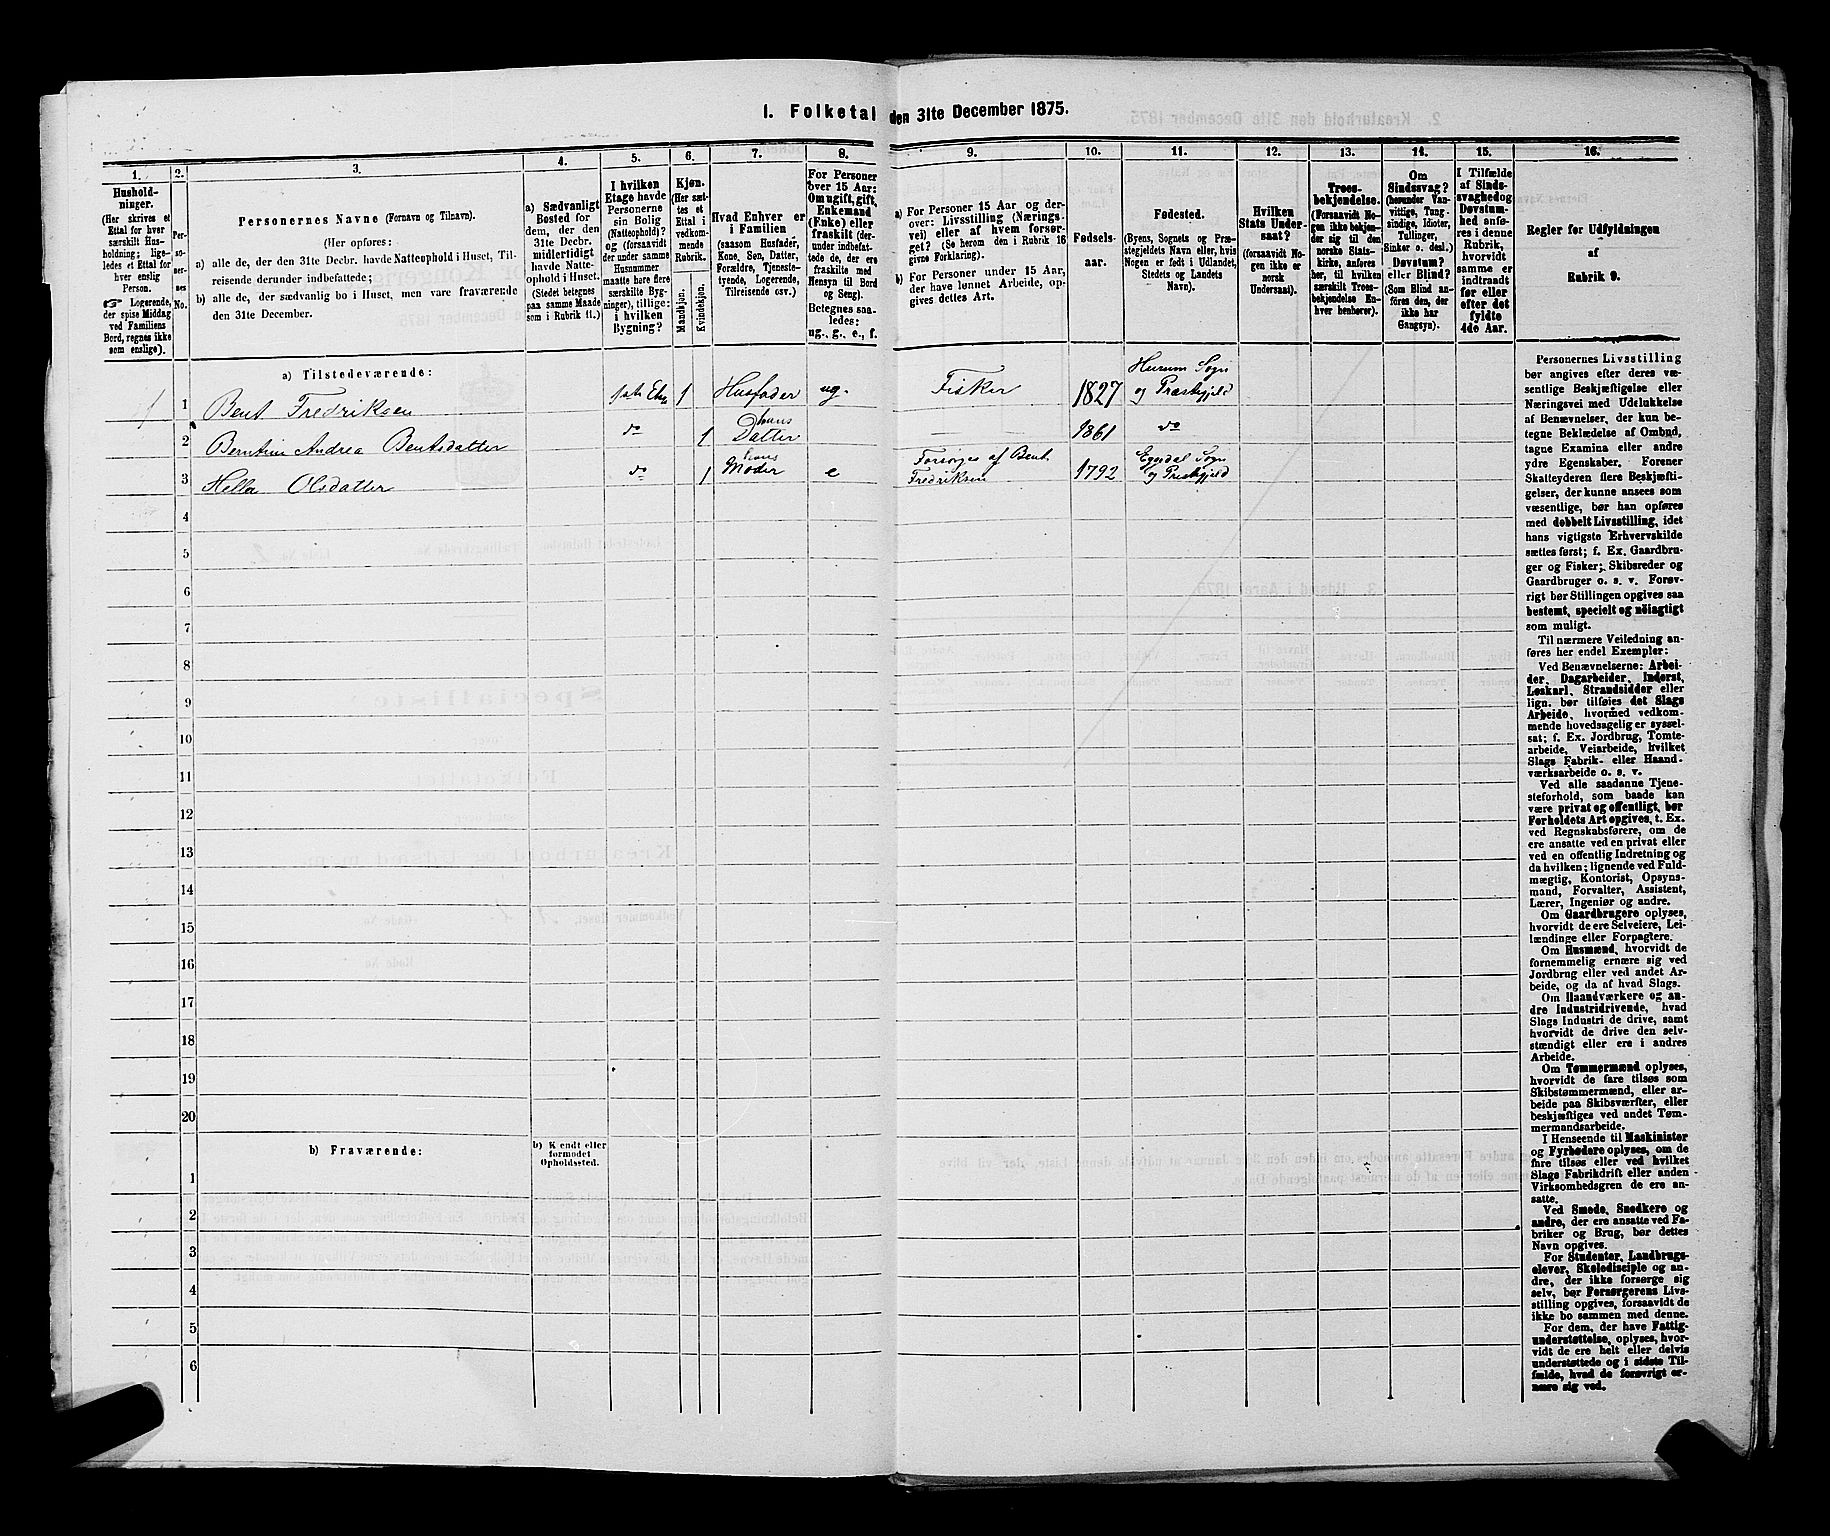 1. Folketal den 31te December 1875.
1.
2.
3.
4.
5.
6.
7.
8.
9.
10.
11.
12.
13.
14.
15.
16.
Hushold-
ninger.
(Her skrives et
Ettal for hver
særskilt Hus-
holdning; lige-
ledes et Ettal for
hver enslig
Person.
☞ Logerende,
der spise Middag
ved Familiens
Bord, regnes ikke
som enslige).
Per-
so-
ner-
nes
No.
Personernes Navne (Fornavn og Tilnavn).
(Her opføres:
a) alle de, der den 31te Decbr. havde Natteophold i Huset, Til-
reisende derunder indbefattede;
b) alle de, der sædvanlig bo i Huset, men vare fraværende
den 31te December.
a) Sædvanligt
Bosted for
dem, der den
31te Decbr.
midlertidigt
havde Natte-
ophold i Huset.
(Stedet betegnes
paa samme Maade
som i Rubrik 11.)
I hvilken
Etage havde
Personerne
sin Bolig
(Natteophold)?
og (forsaavidt
der under samme
Husnummer
maatte høre flere
særskilte Byg-
ninger), tillige:
i hvilken
Bygning?
Kjøn.
(Her sæt-
tes et
Ettal i
vedkom-
mende
Rubrik.
Mandkjøn.
Kvindekjøn.
Hvad Enhver er
i Familien
(saasom Husfader,
Kone, Søn, Datter,
Forældre, Tjeneste-
tyende, Logerende,
Tilreisende osv.)
For Personer
over 15 Aar:
Om ugift, gift,
Enkemand
(Enke) eller
fraskilt (der-
under indbefat-
tede de, der ere
fraskilte med
Hensyn til Bord
og Seng).
Betegnes saa-
ledes:
ug., g., e., f.
a) For Personer 15 Aar og der-
over: Livsstilling (Nærings-
vei) eller af hvem forsør-
get? (Se herom den i Rubrik 16
givne Forklaring).
b) For Personer under 15 Aar,
der have lønnet Arbeide, op-
gives dettes Art.
Fødsels-
aar.
Fødested.
(Byens, Sognets og Præ-
stegjeldets Navn eller, hvis
Nogen er født i Udlandet,
Stedets og Landets
Navn).
Hvilken
Stats Under-
saat?
(forsaavidt No-
gen ikke er
norsk
Undersaat).
Troes-
bekjendelse.
(Forsaavidt No-
gen ikke bekjen-
der sig til den
norske Stats-
kirke, anføres
her, til hvilken
særskilt Troes-
bekjendelse En-
hver henhører).
Om
Sindssvag?
(herunder Van-
vittige, Tung-
sindige, Idioter,
Tullinger,
Sinker o. desl.)
Døvstum?
eller Blind?
(Som Blind an-
føres den, der
ikke har
Gangsyn).
I Tilfælde
af Sinds-
svaghed og
Døvstum-
hed anfø-
res i denne
Rubrik,
hvorvidt
samme er
indtraadt
før eller
efter det
fyldte
4de Aar.
Regler for Udfyldningen
af
Rubrik 9.
a) Tilstedeværende:
1 1 Bent Fredriksen 1ste Eta 1 Husfader ug. Fisker 1827 Hurum Sogn
og Præstegjeld
2 Berntine Andrea Bentsdatter do 1 hans
Datter — 1861 do
3 Hella Olsdatter do 1 hans
Moder e Forsørges af Bent
Fredriksen 1792 Egedal Sogn
og Præstegjeld
4
5
6
7
8
9
10
11
12
13
14
15
16
17
18
19
20
b) Fraværende:
b) Kjendt eller
formodet
Opholdssted.
1
2
3
4
5
6
Personernes Livsstilling
bør angives efter deres væ-
sentlige Beskjæftigelse eller
Næringsvei med Udelukkelse
af Benævnelser, der kun be-
tegne Beklædelse af Ombud,
tagne Examina eller andre
ydre Egenskaber. Forener
Skatteyderen flere Beskjæfti-
gelser, der kunne ansees som
væsentlige, bør han opføres
med dobbelt Livsstilling, idet
hans vigtigste Erhvervskilde
sættes først; f. Ex. Gaardbru-
ger og Fisker; Skibsreder og
Gaardbruger o. s. v. Forøv-
rigt bør Stillingen opgives saa
bestemt, specielt og nöiagtigt
som muligt.
Til nærmere Veiledning an-
føres her endel Exempler:
Ved Benævnelserne: Arbei-
der, Dagarbeider, Inderst,
Løskarl, Strandsidder eller
lign. bør tilføies det Slags
Arbeide, hvormed vedkom-
mende hovedsagelig er syssel-
sat; f. Ex. Jordbrug, Tomte-
arbeide, Veiarbeide, hvilket
Slags Fabrik- eller Haand-
værksarbeide o. s. v.
Ved alle saadanne Tjene-
steforhold, som baade kan
være privat og offentligt, bør
Forholdets Art opgives, t. Ex.
ved Regnskabsførere, om de
ere ansatte ved en privat eller
ved en offentlig Indretning og
da hvilken; lignende ved Fuld-
mægtig, Kontorist, Opsyns-
mand, Forvalter, Assistent,
Lærer, Ingeniør og andre.
Om Gaardbrugere oplyses,
hvorvidt de ere Selveiere, Lei-
lændinge eller Forpagtere.
Om Husmænd, hvorvidt de
fornemmelig ernære sig ved
Jordbrug eller ved andet Ar-
beide, og da af hvad Slags.
Om Haandværkere og an-
dre Industridrivende, hvad
Slags Industri de drive, samt
hvorvidt de drive den selv-
stændigt eller ere i andres
Arbeide.
Om Tømmermænd oplyses,
hvorvidt de fare tilsøs som
Skibstømmermænd, eller ar-
beide paa Skibsværfter, eller
beskjæftiges ved andet Tøm-
mermandsarbeide.
I Henseende til Maskinister
og Fyrbødere oplyses, om de
fare tilsøs eller ved hvilket
Slags Fabrikdrift eller anden
Virksomhedsgren de ere an-
satte.
Ved Smede, Snedkere og
andre, der ere ansatte ved Fa-
briker og Brug, bør dettes
Navn opgives.
For Studenter, Landbrugs-
elever, Skoledisciple og an-
dre, der ikke forsørge sig
selv, bør Forsørgerens Livs-
stilling opgives, forsaavidt de
ikke bo sammen med denne.
For dem, der have Fattig-
understøttelse, oplyses, hvor-
vidt de ere helt eller delvis
understøttede og i sidste Til-
fælde, hvad de forøvrigt er-
nære sig ved.